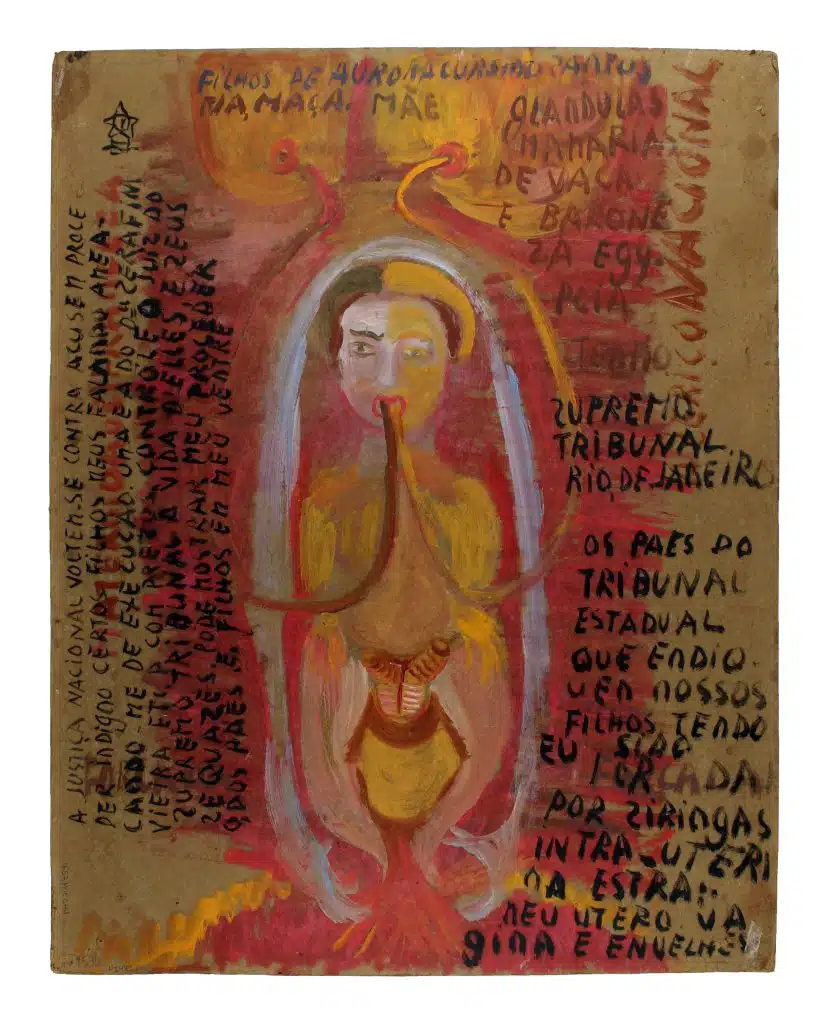 FILHOS DE AURORA CURSINO SANTOS
MAÇA. MÃE
GLANDULAS
MAMARIAS
DE VACA
E BARONE
ZA EGY.
PCIA
TENHO
NACIONAL
ZUPREMO
TRIBUNAL.
RIO, DE JANEIRO
OS PAES DO
TRIBUNAL
ESTADUAL
QUE ENDIO.
UEN NOSSOS
FILHOS TENDO
EU SIDO
FORCADA
POR ZIRINGAS
INTRA-UTERI
NA ESTRA..
MEU UTERO VA
gina E ENVELHE
A JUSTIÇA NACIONAL VOLTEM-SE CONTRA ACUSEM PROLE
PER INDIGNO CERTOS FILHOS MEUS FALANDO AMEA-
CANDO ME DE EXECUCÃO. UMA É A DO DR ZERAFIM
VIEIRA ETC. COM CONTROLE O JUIZ DO
ZUPREMO TRIBUNAL A VIDA D'ELLES E ZEUS
ZEQUAZES, PODE MOSTRAR MEU PROCEDER
DOS PAES E FILHOS EM MEU VENTRE